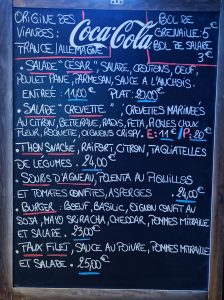 ORIGINE DES
VIANDES:
FRANCE/ALLEMAGNE
Coca-Cola
BOL DE
GRENAILLE: 5€
BOL DE SALADE
3€
• SALADE "CÉSAR", SALADE, CROUTONS, OEUF,
POULET PANÉ, PARMESAN, SAUCE A L'ANCHOIS.
ENTRÉE: 11,00€ PLAT: 20,00€
• SALADE "CREVETTE". CREVETTES MARINÉES
AU CITRON, BETTERAVE, RADIS, FETA, PICKLES CHOUX
FLEUR, ROQUETTE, OIGNONS CRISPY. E: 11€/P: 20€
• THON SNACKÉ, RAIFORT, CITRON, TAGLIATELLE
DE LÉGUMES. 24,00€
• SOURIS D'AGNEAU, POLENTA AU PIQUILLOS
ET TOMATES CONFITES, ASPERGES. 24,00€
• BURGER: BOEUF, BASILIC, OIGNON CONFIT AU
SOJA, MAYO SRIRACHA, CHEDDAR, POMMES MITRAILLE
ET SALADE. 23,00€
• FAUX FILET, SAUCE AU POIVRE, POMMES MITRAILLE
ET SALADE. 25,00€